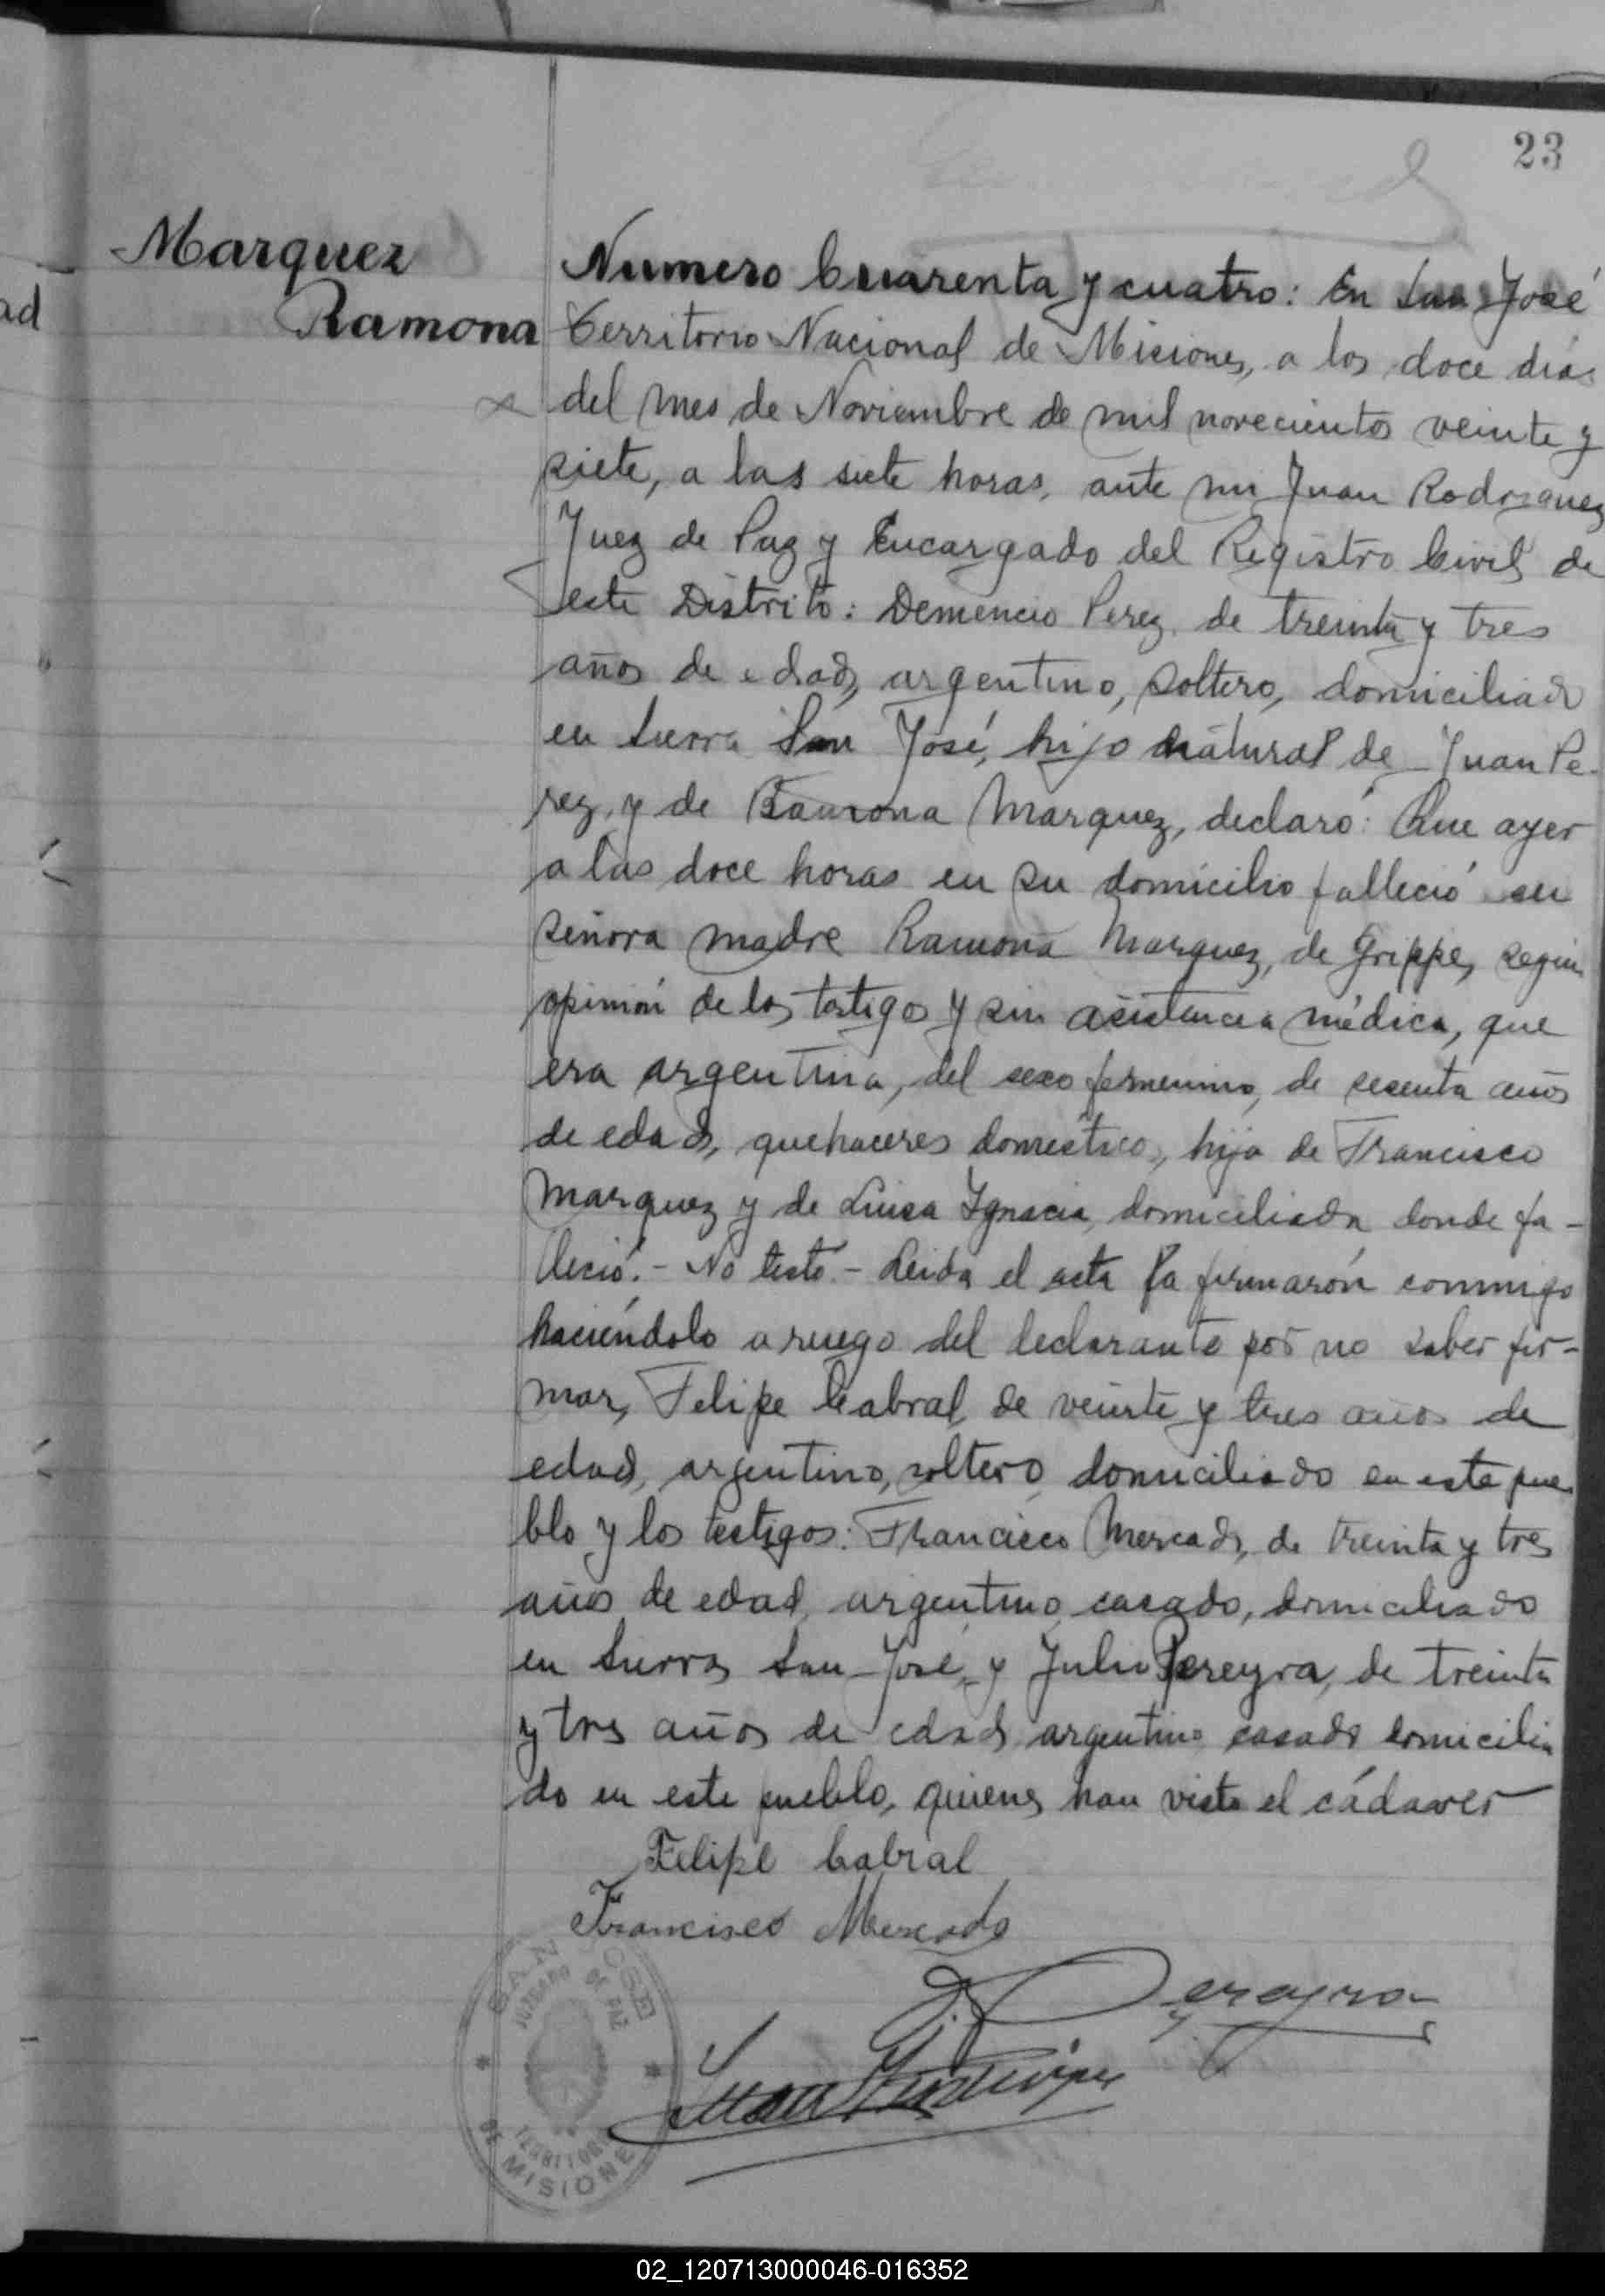 23
ad
Marquez
Ramona
Numero Cuarenta y cuatro: En San José
Territorio Nacional de Misiones, a los doce días
del mes de Noviembre de mil novecientos veinte y
siete, a las siete horas, ante mi Juan Rodriguez
Juez de Paz y Encargado del Registro Civil de
este Distrito: Demencio Perez, de treinta y tres
años de edad, argentino, soltero, domiciliado
en Sierra San José, hijo natural de Juan Pe-
rez, y de Ramona Marquez, declaró: Que ayer
a las doce horas en su domicilio falleció su
señora madre Ramona Marquez, de Grippe, según
opinión de los testigos y sin asistencia médica, que
era argentina, del sexo femenino, de sesenta años
de edad, quehaceres domésticos, hija de Francisco
Marquez y de Luisa Ignacia, domiciliada donde fa-
lleció.- No testó.- Leida el acta la firmarón conmigo
haciéndolo a ruego del declarante por no saber fir-
mar, Felipe Cabral, de veinte y tres años de
edad, argentino, soltero, domiciliado en este pue-
blo y los testigos: Francisco Mercado, de treinta y tres
años de edad, argentino, casado, domiciliado
en Sierra San José, y Julio Pereyra, de treinta
y tres años de edad, argentino casado domicilia
do en este pueblo, quienes han visto el cádaver
Felipe Cabral
Francisco Mercado
J. Pereyra
Juan Rodriguez
SAN JOSE
JUZGADO DE PAZ
DE MISIONE
02_120713000046-016352